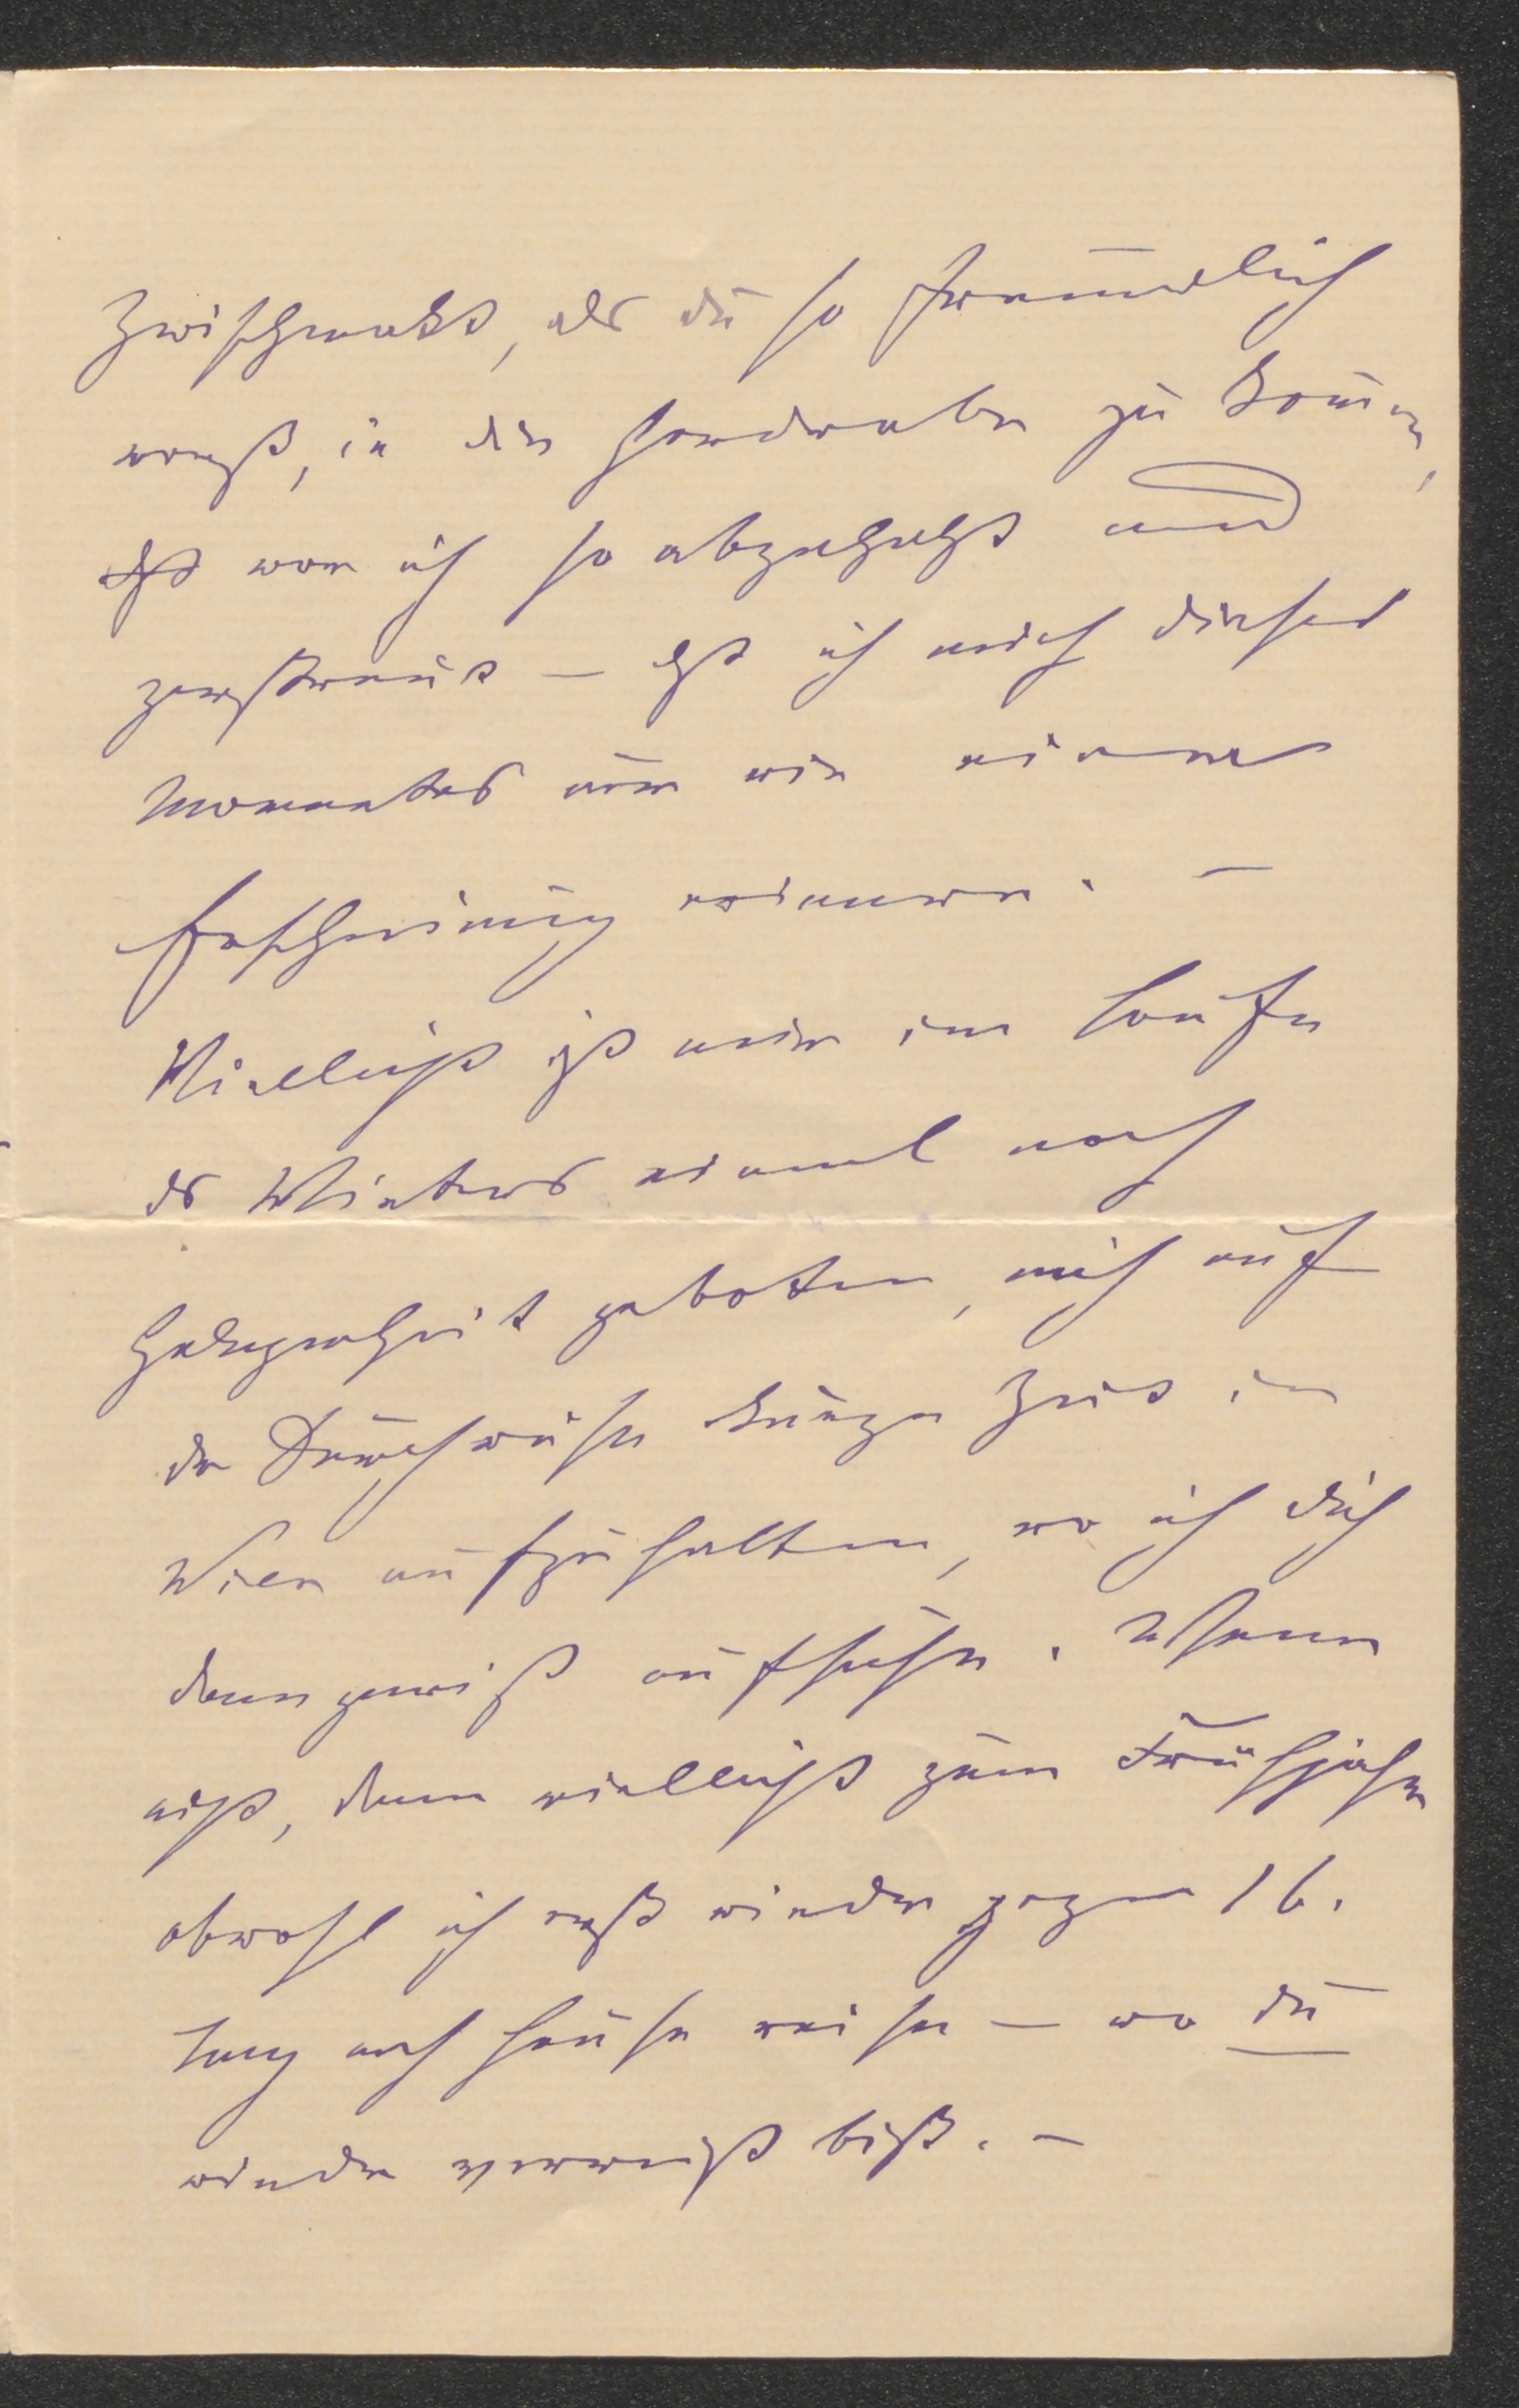 Zwischenakt, als du so freundlich
warst, in die Garderobe zu komen,
da war ich so abgehetzt und
zerstreut – daß ich mich dieses
Momentes nur wie einer
Erscheinung erinnere. –
Vielleicht ist mir im Laufe
des Winters einmal noch
Gelegenheit geboten, mich auf
der Durchreise kurze Zeit in
Wien aufzuhalten, wo ich dich
dann gewiß aufsuche. Wenn
nicht, dann vielleicht zum Frühjahr
obwohl ich erst wieder gegen 16.
nach Hause reise – wo du
wieder verreist bist. –